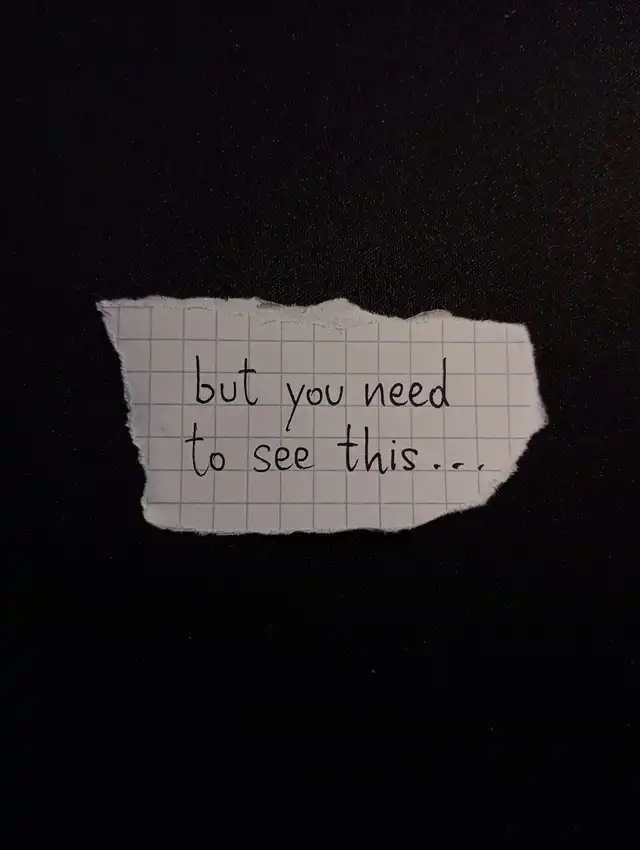 but you need
to see this...